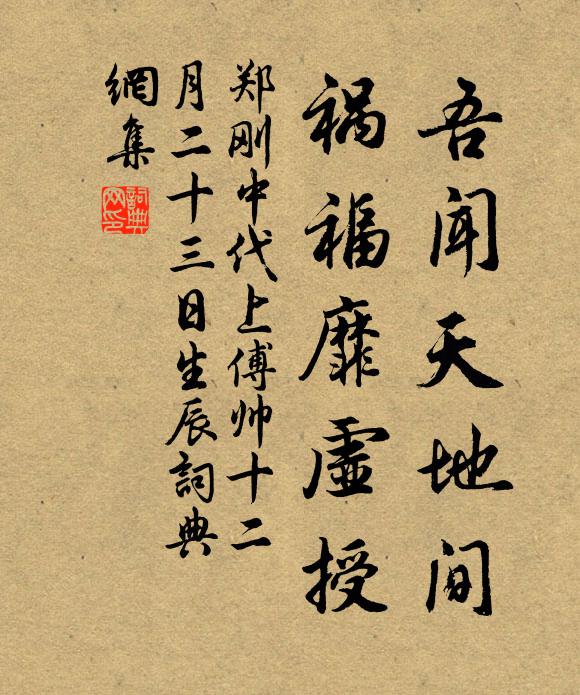 吾闻天地间
祸福靡虚授
郑刚中代上傅帅十二
月二十三日生辰詞典
網集
詞典
网印